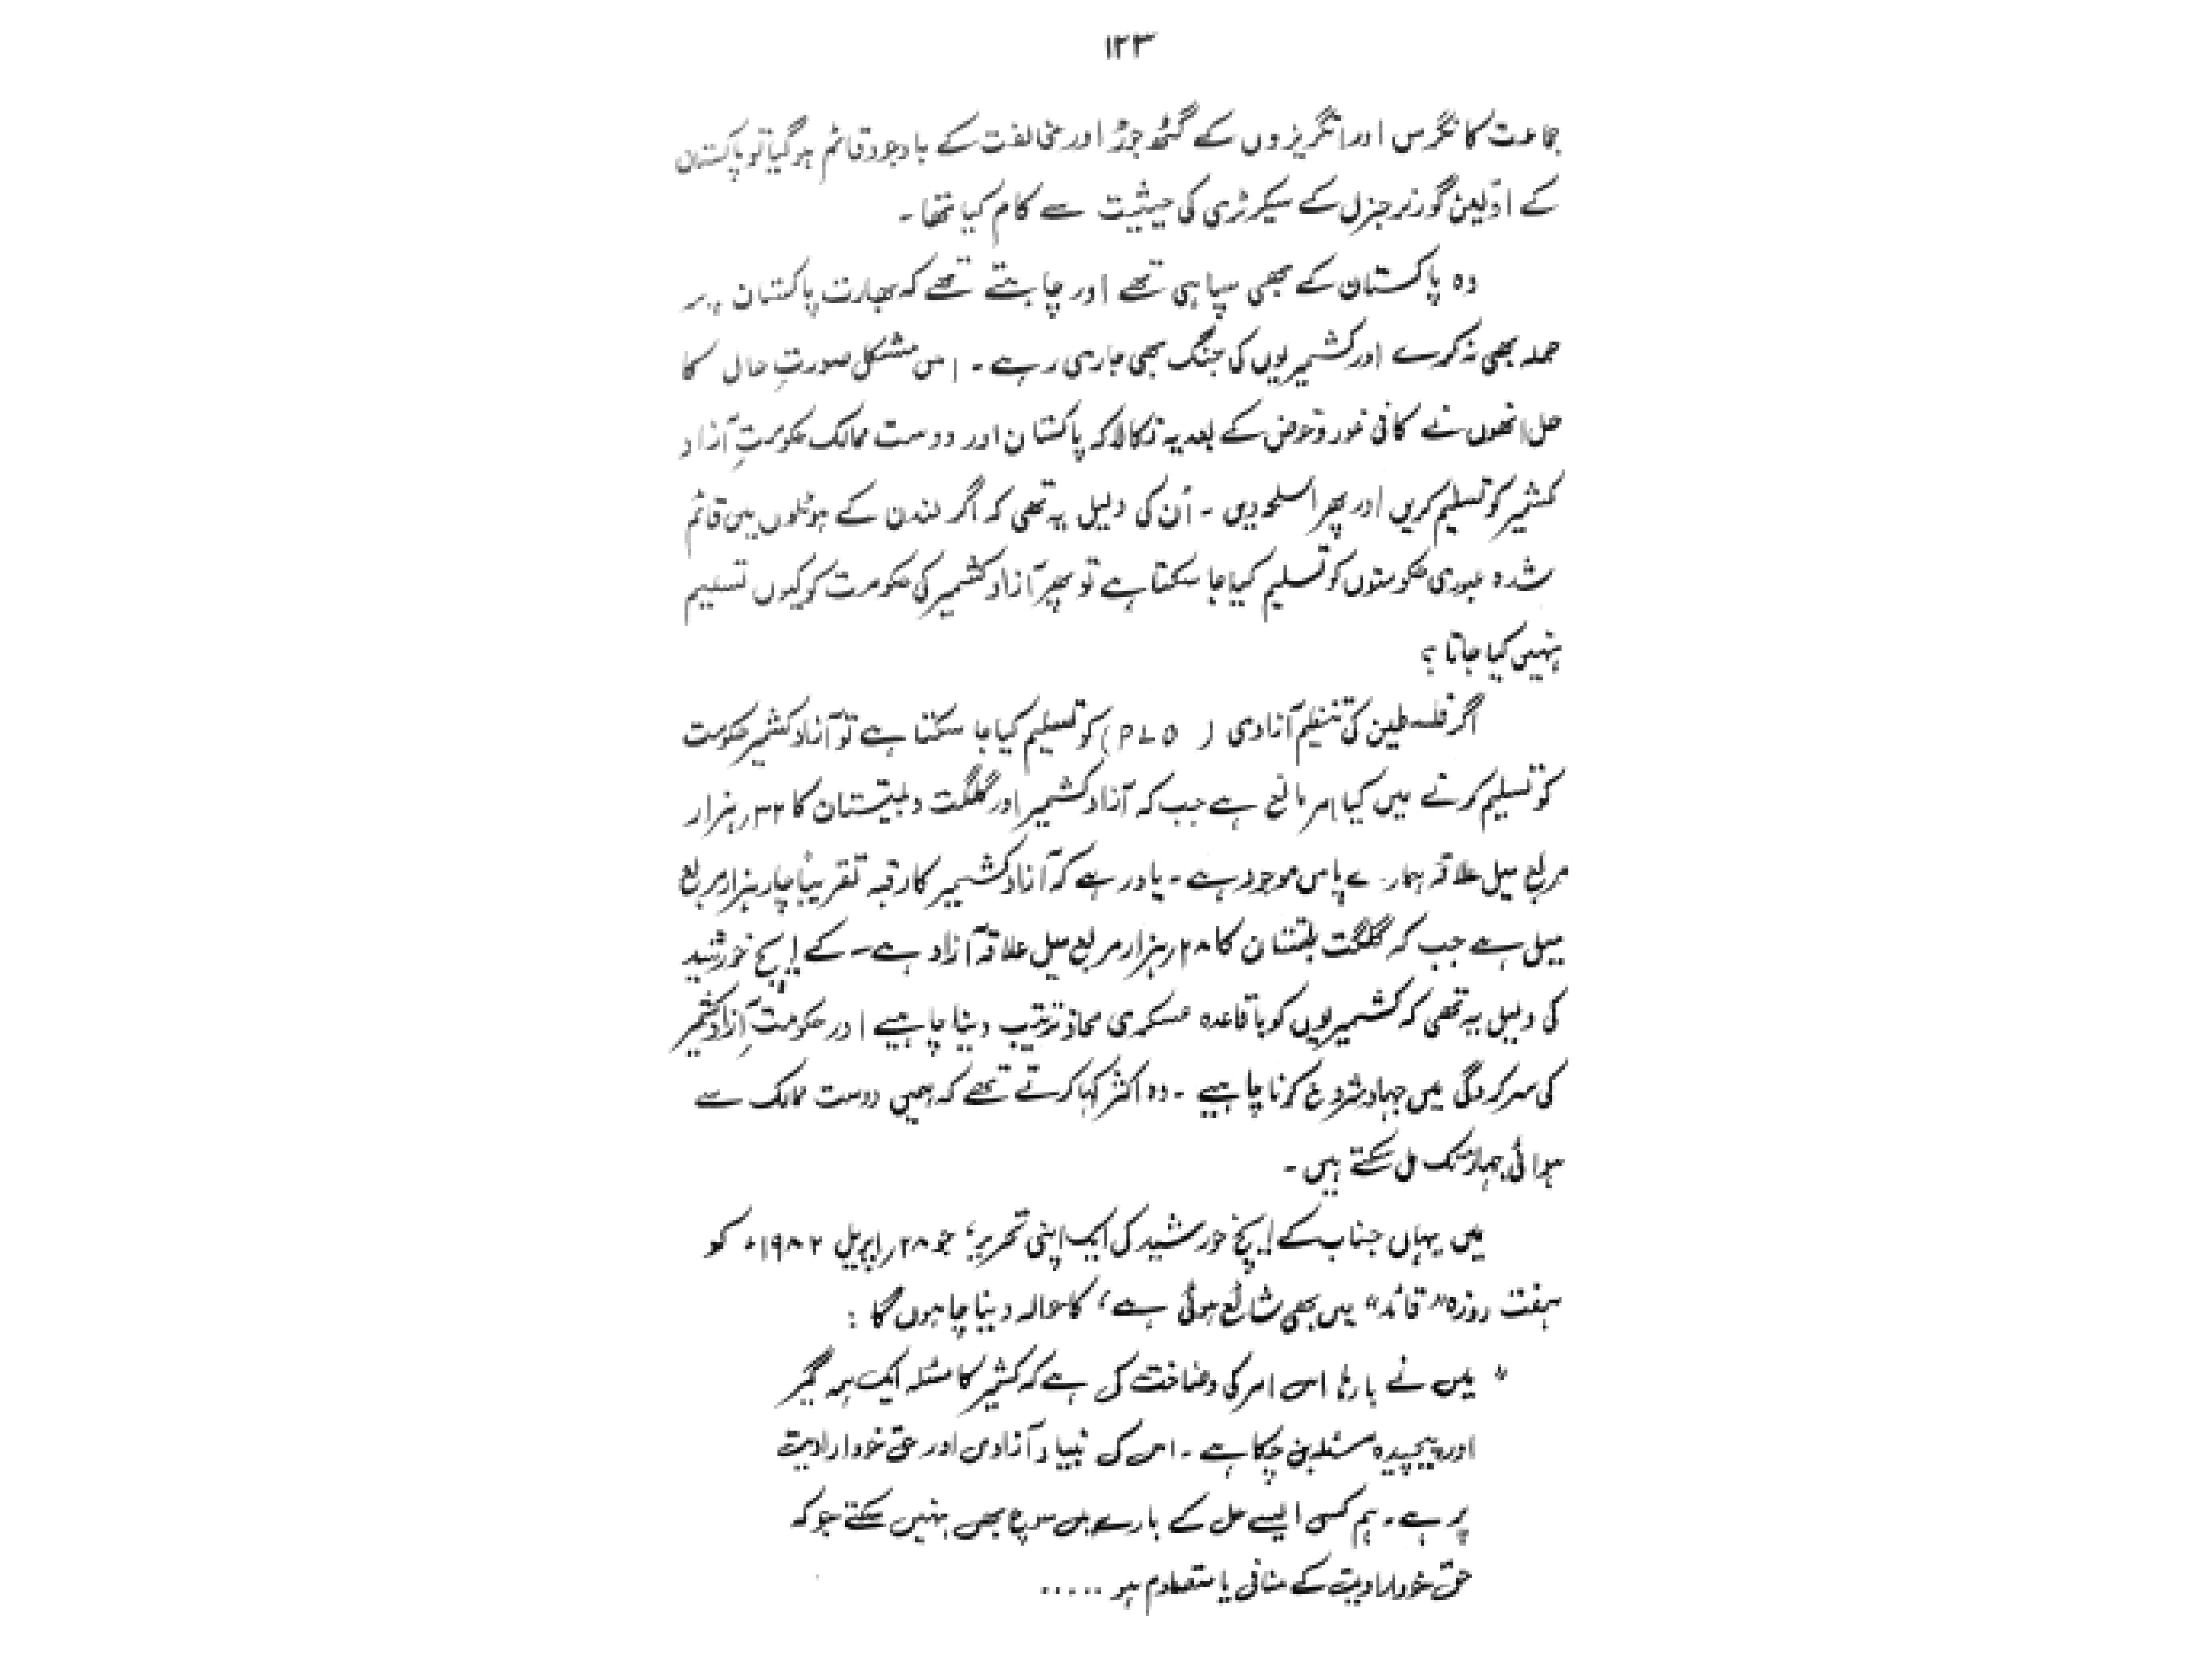 ۱۲۳
جماعت کانگرس اور انگریزوں کے گٹھ جوڑ اور مخالفت کے باوجود قائم ہو گیا تو پاکستان
کے اوّلین گورنر جنرل کے سیکرٹری کی حیثیت سے کام کیا تھا۔
وہ پاکستان کے بھی سپاہی تھے اور چاہتے تھے کہ بھارت پاکستان پر
حملہ بھی نہ کرے اور کشمیریوں کی جنگ بھی جاری رہے۔ اس مشکل صورتِ حال کا
حل انھوں نے کافی غور و خوض کے بعد یہ نکالا کہ پاکستان اور دوست ممالک حکومتِ آزاد
کشمیر کو تسلیم کریں اور پھر اسلحہ دیں۔ اُن کی دلیل یہ تھی کہ اگر لندن کے ہوٹلوں میں قائم
شدہ عبوری حکومتوں کو تسلیم کیا جا سکتا ہے تو پھر آزاد کشمیر کی حکومت کو کیوں تسلیم
نہیں کیا جاتا؟
اگر فلسطین کی تنظیم آزادی (PLO) کو تسلیم کیا جا سکتا ہے تو آزاد کشمیر حکومت
کو تسلیم کرنے میں کیا امر مانع ہے جب کہ آزاد کشمیر اور گلگت و بلتستان کا ۳۲؍ہزار
مربع میل علاقہ ہمارے پاس موجود ہے۔ یاد رہے کہ آزاد کشمیر کا رقبہ تقریباً چار ہزار مربع
میل ہے جب کہ گلگت بلتستان کا ۲۸؍ہزار مربع میل علاقہ آزاد ہے۔ کے ایچ خورشید
کی دلیل یہ تھی کہ کشمیریوں کو باقاعدہ عسکری محاذ ترتیب دینا چاہیے اور حکومتِ آزاد کشمیر
کی سرکردگی میں جہاد شروع کرنا چاہیے۔ وہ اکثر کہا کرتے تھے کہ ہمیں دوست ممالک سے
ہوائی جہاز تک مل سکتے ہیں۔
میں یہاں جناب کے ایچ خورشید کی ایک اپنی تحریر، جو ۲۸؍اپریل ۱۹۸۲ء کو
ہفت روزہ "قائد" میں بھی شائع ہوئی ہے، کا حوالہ دینا چاہوں گا :
" میں نے بارہا اس امر کی وضاحت کی ہے کہ کشمیر کا مسئلہ ایک ہمہ گیر
اور پیچیدہ مسئلہ بن چکا ہے۔ اس کی بنیاد آزادی اور حقِ خودارادیت
پر ہے۔ ہم کسی ایسے حل کے بارے میں سوچ بھی نہیں سکتے جو کہ
حقِ خودارادیت کے منافی یا متصادم ہو .....